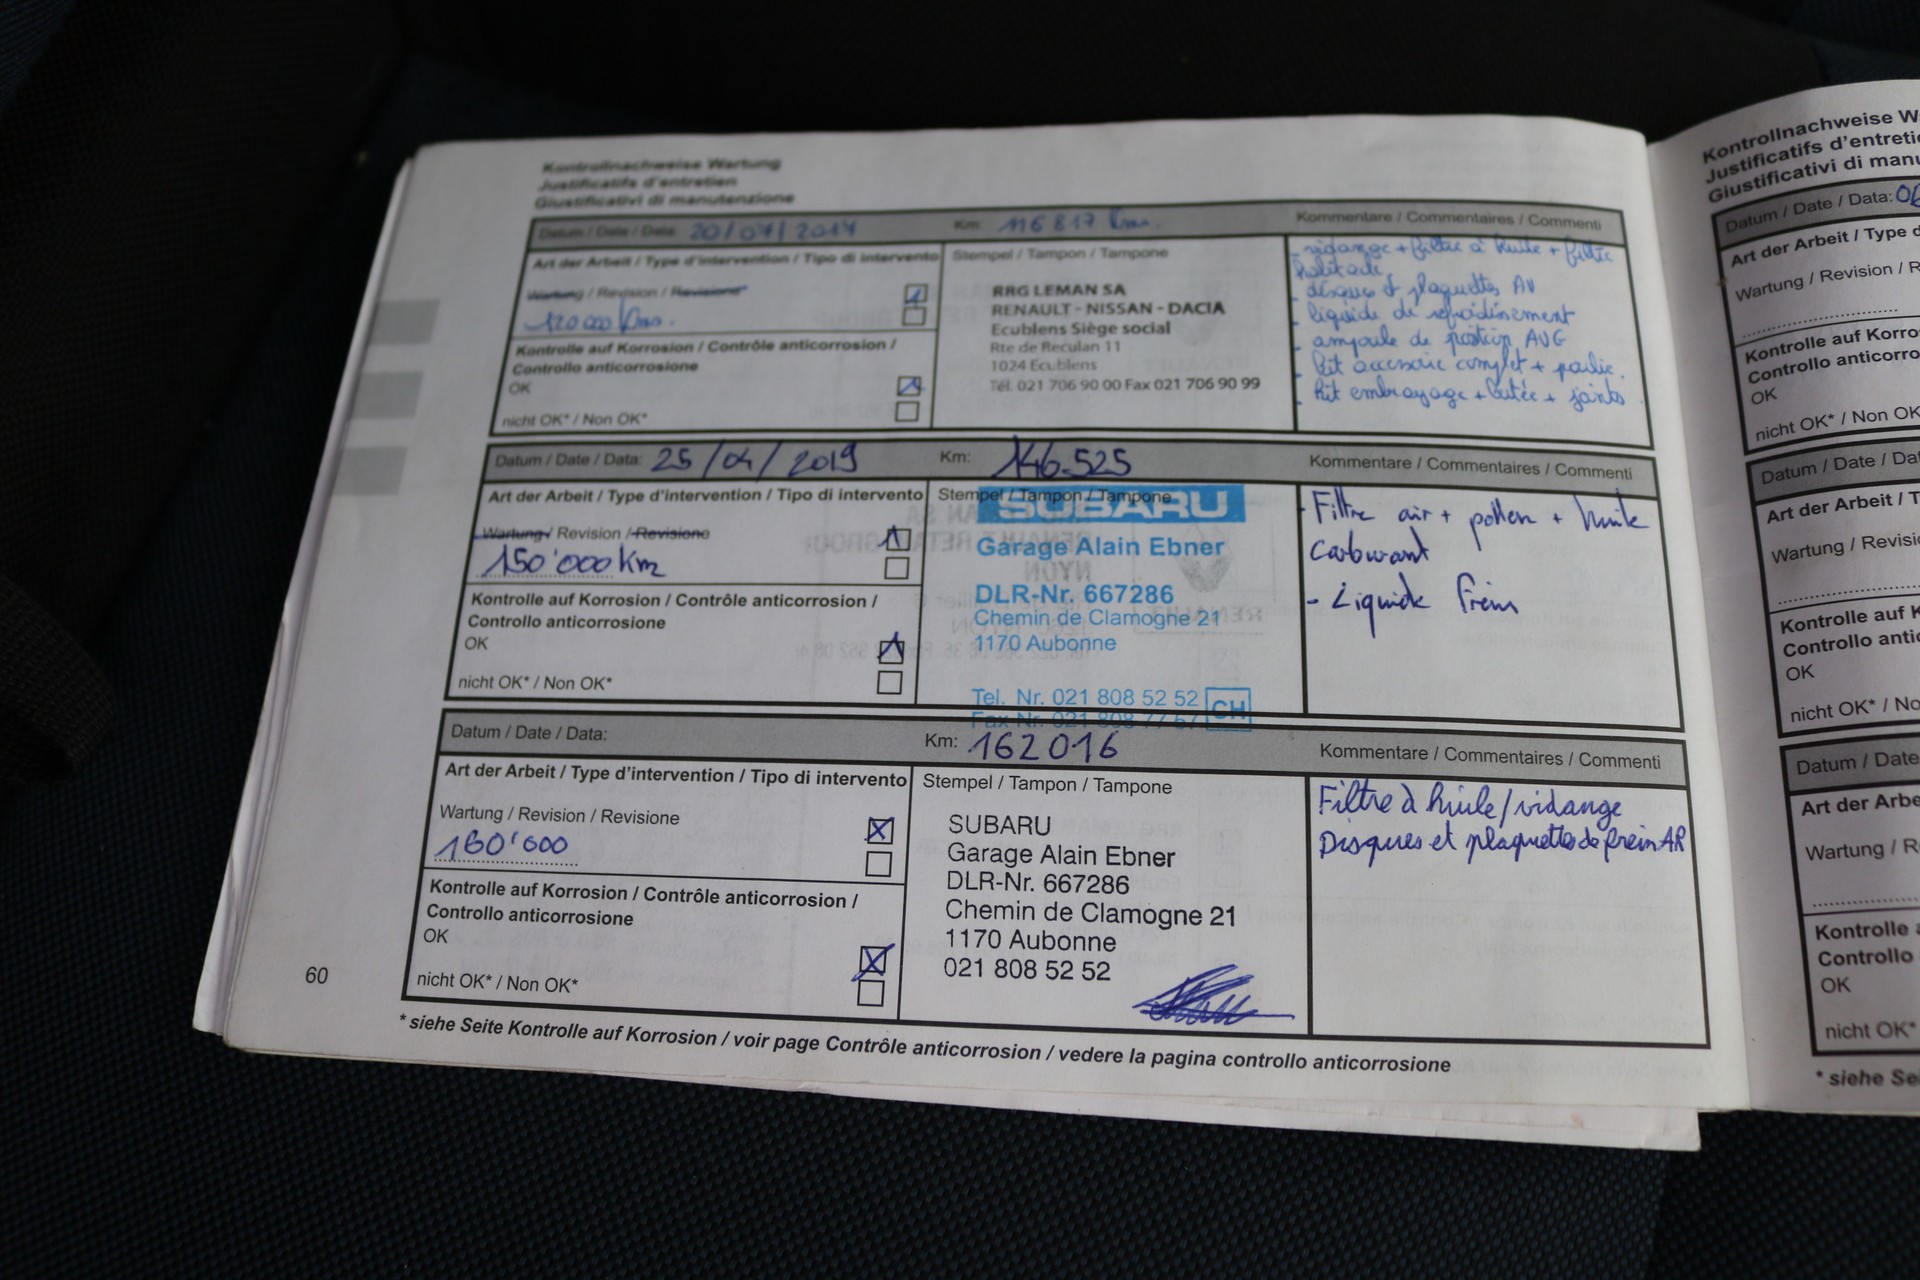 Kontrollnachweise Wartung
Justificatifs d'entretien
Giustificativi di manutenzione
Datum / Date / Data: 20/07/2017 Km: 116 817 km. Kommentare / Commentaires / Commenti
Art der Arbeit / Type d'intervention / Tipo di intervento
Wartung / Revision / Revisione
120 000 km.
Kontrolle auf Korrosion / Contrôle anticorrosion /
Controllo anticorrosione
OK
nicht OK* / Non OK*
Stempel / Tampon / Tampone
RRG LEMAN SA
RENAULT - NISSAN - DACIA
Ecublens Siège social
Rte de Reculan 11
1024 Ecublens
Tél. 021 706 90 00 Fax 021 706 90 99
- vidange + filtre à huile + filtre
habitacle
- disques et plaquettes AV
- liquide de refroidissement
- ampoule de position AVG
- kit accessoire complet + poulie.
- kit embrayage + butée + joints
Datum / Date / Data: 25/04/2019 Km: 146.525 Kommentare / Commentaires / Commenti
Art der Arbeit / Type d'intervention / Tipo di intervento
Wartung / Revision / Revisione
150'000 km
Kontrolle auf Korrosion / Contrôle anticorrosion /
Controllo anticorrosione
OK
nicht OK* / Non OK*
Stempel / Tampon / Tampone
SUBARU
Garage Alain Ebner
DLR-Nr. 667286
Chemin de Clamogne 21
1170 Aubonne
Tel. Nr. 021 808 52 52 CH
Fax Nr. 021 808 77 67
- Filtre air + pollen + huile
Carburant
- Liquide frein
Datum / Date / Data: Km: 162016 Kommentare / Commentaires / Commenti
Art der Arbeit / Type d'intervention / Tipo di intervento
Wartung / Revision / Revisione
160'000
Kontrolle auf Korrosion / Contrôle anticorrosion /
Controllo anticorrosione
OK
nicht OK* / Non OK*
Stempel / Tampon / Tampone
SUBARU
Garage Alain Ebner
DLR-Nr. 667286
Chemin de Clamogne 21
1170 Aubonne
021 808 52 52
Filtre à huile/vidange
Disques et plaquettes de frein AR
60
* siehe Seite Kontrolle auf Korrosion / voir page Contrôle anticorrosion / vedere la pagina controllo anticorrosione
Kontrollnachweise W
Justificatifs d'entretie
Giustificativi di manu
Datum / Date / Data: 06
Art der Arbeit / Type d
Wartung / Revision / R
Kontrolle auf Korro
Controllo anticorro
OK
nicht OK* / Non OK
Datum / Date / Dat
Art der Arbeit / T
Wartung / Revisi
Kontrolle auf K
Controllo antic
OK
nicht OK* / No
Datum / Date
Art der Arbe
Wartung / R
Kontrolle a
Controllo
OK
nicht OK*
* siehe Se